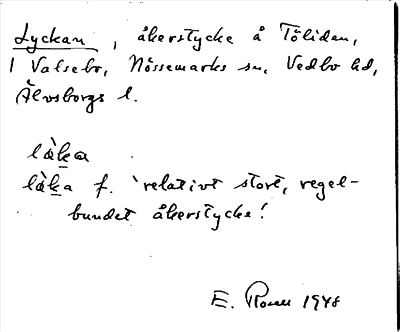 Lyckan, åkerstycke å Töliden,
1 Valsebo, Nössemarks sn, Vedbo hd,
Älvsborgs l.
lȧka
lȧka f. 'relativt stort, regel-
bundet åkerstycke!
E. 1948